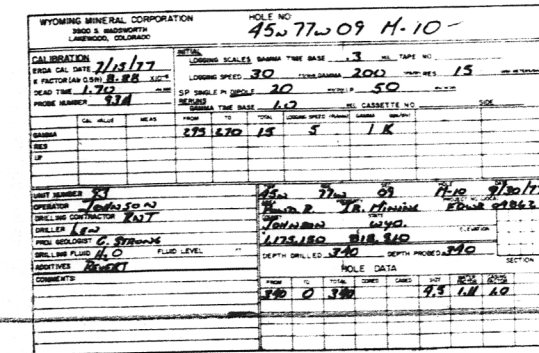 WYOMING MINERAL CORPORATION
3900 S WADSWORTH
LAKEWOOD, COLORADO
HOLE NO:
45N 77W 09 H-10
CALIBRATION
ERDA CAL DATE 7/15/77
K FACTOR
DEAD TIME 1.70
PROBE NUMBER
INITIAL
LOGGING SCALES GAMMA TIME BASE .3 TAPE NO
LOGGING SPEED 30 GAMMA 200 RES 15
SP SINGLE PT DIPOLE 20 50
RERUNS
GAMMA TIME BASE 1.0 CASSETTE NO SIDE
CAL VALUE MEAS FROM TO TOTAL LOGGING SPEED GAMMA
GAMMA 295 270 15 5 1K
RES
I.P
UNIT NUMBER 83
OPERATOR JOHNSON
DRILLING CONTRACTOR
DRILLER LEN
PROJ GEOLOGIST C. STRONG
DRILLING FLUID H2O FLUID LEVEL
ADDITIVES REVERT
COMMENTS:
45N 77W 09 H-10 9/30/77
MINING
JOHNSON WYO.
ELEVATION
DEPTH DRILLED 340 DEPTH PROBED 340
SECTION
HOLE DATA
FROM TO TOTAL CORED CASED SIZE
340 0 340 4.5 1.11 1.0